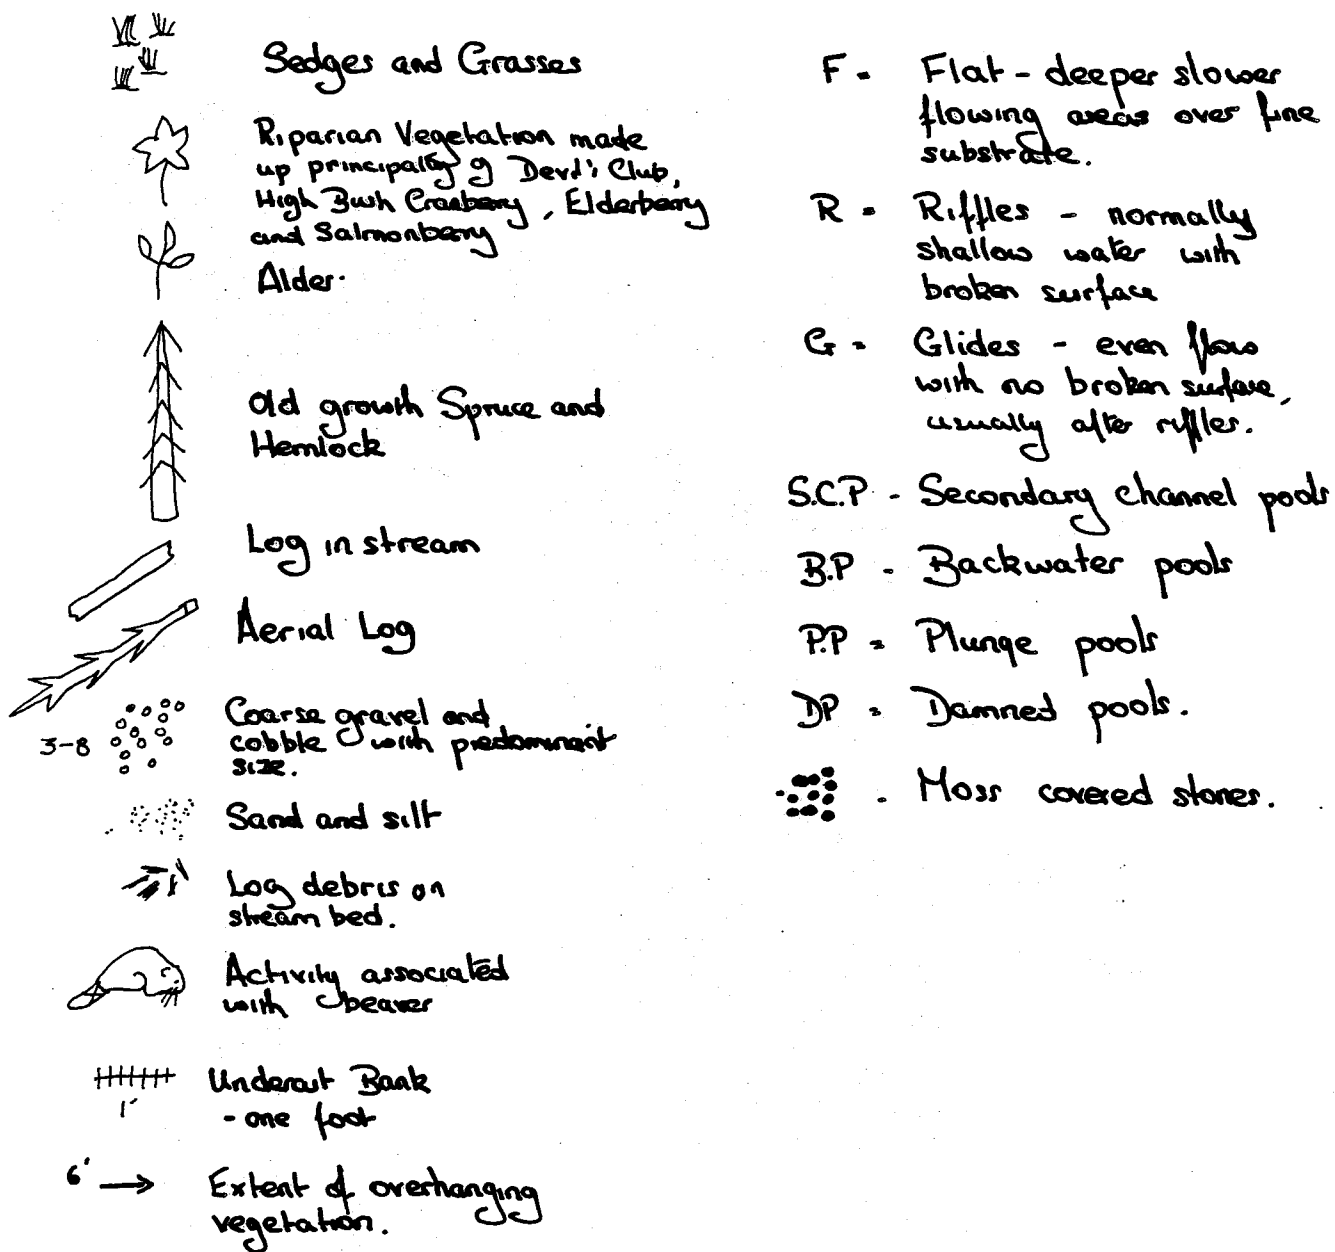 Sedges and Grasses
Riparian Vegetation made
up principally of Devil's Club,
High Bush Cranberry, Elderberry
and Salmonberry
Alder.
Old growth Spruce and
Hemlock
Log in stream
Aerial Log
3-8
Coarse gravel and
cobble with predominant
size.
Sand and silt
Log debris on
stream bed.
Activity associated
with beaver
1'
Undercut Bank
- one foot
6'
Extent of overhanging
vegetation.
F = Flat - deeper slower
flowing areas over fine
substrate.
R = Riffles - normally
shallow water with
broken surface
G = Glides - even flow
with no broken surface,
usually after riffles.
S.C.P - Secondary channel pools
B.P - Backwater pools
P.P = Plunge pools
DP = Damned pools.
- Moss covered stones.